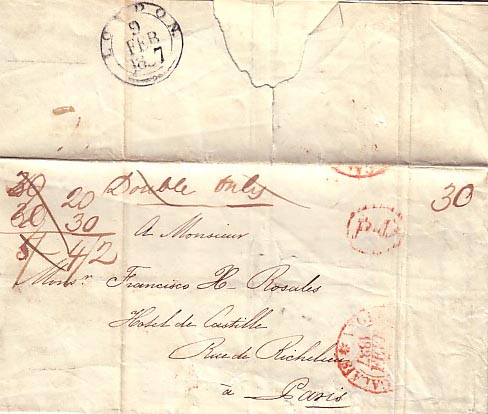 LONDON
9
FEB
1837
Double only
30
20
30
30
42
A Monsieur
Monsr. Francisco X Rosales
Hotel de Castille
Rue de Richelieu
à Paris
CALAIS
1837